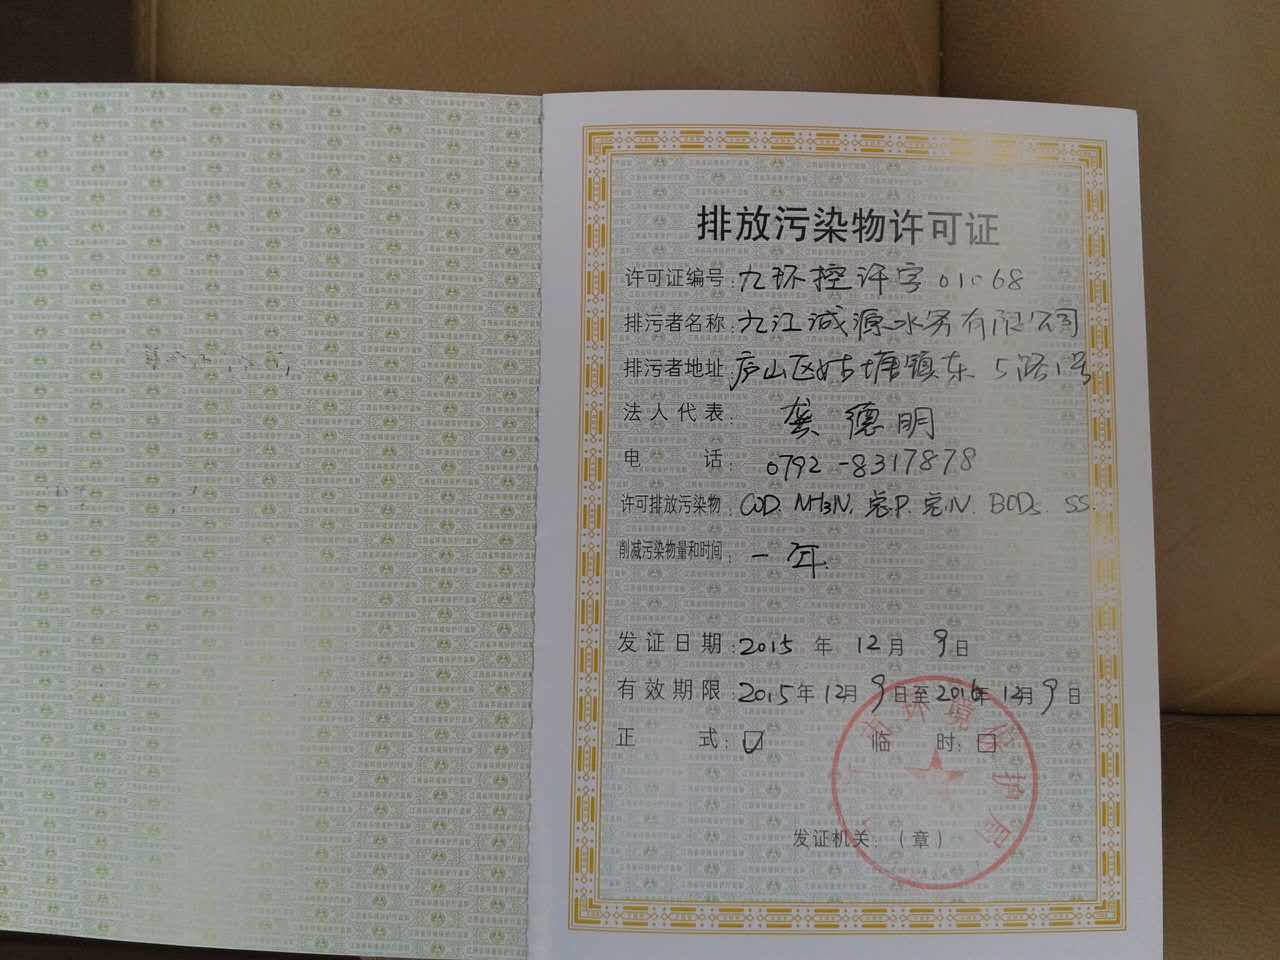 排放污染物许可证
许可证编号：九环控许字01068
排污者名称：九江诚源水务有限公司
排污者地址：庐山区姑塘镇东5路1号
法人代表：龚德明
电话：0792-8317878
许可排放污染物：COD. NH3N. 总P. 总N. BOD5. SS.
削减污染物量和时间：一年.
发证日期：2015年12月9日
有效期限：2015年12月9日至2016年12月9日
正式：☑ 临时：□
市环境保护局
发证机关：（章）